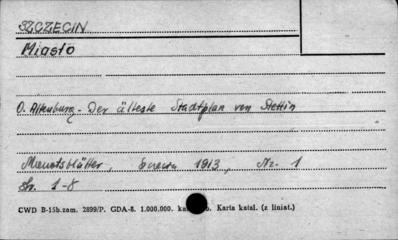 SZCZECIN
Miasto
O. Altenburg - Der älteste Stadtplan von Stettin
Monatsblätter, 1913, Nr. 1
Str. 1-8
CWD B-15b.zam. 2899/P. GDA-8. 1.000.000. Karta katal. (z liniat.)